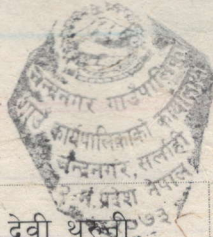 चन्द्रनगर गाउँपालिका
गाउँ कार्यपालिकाको कार्यालय
चन्द्रनगर, सर्लाही
२ नं. प्रदेश नेपाल
२०७३
देवी थरुनी